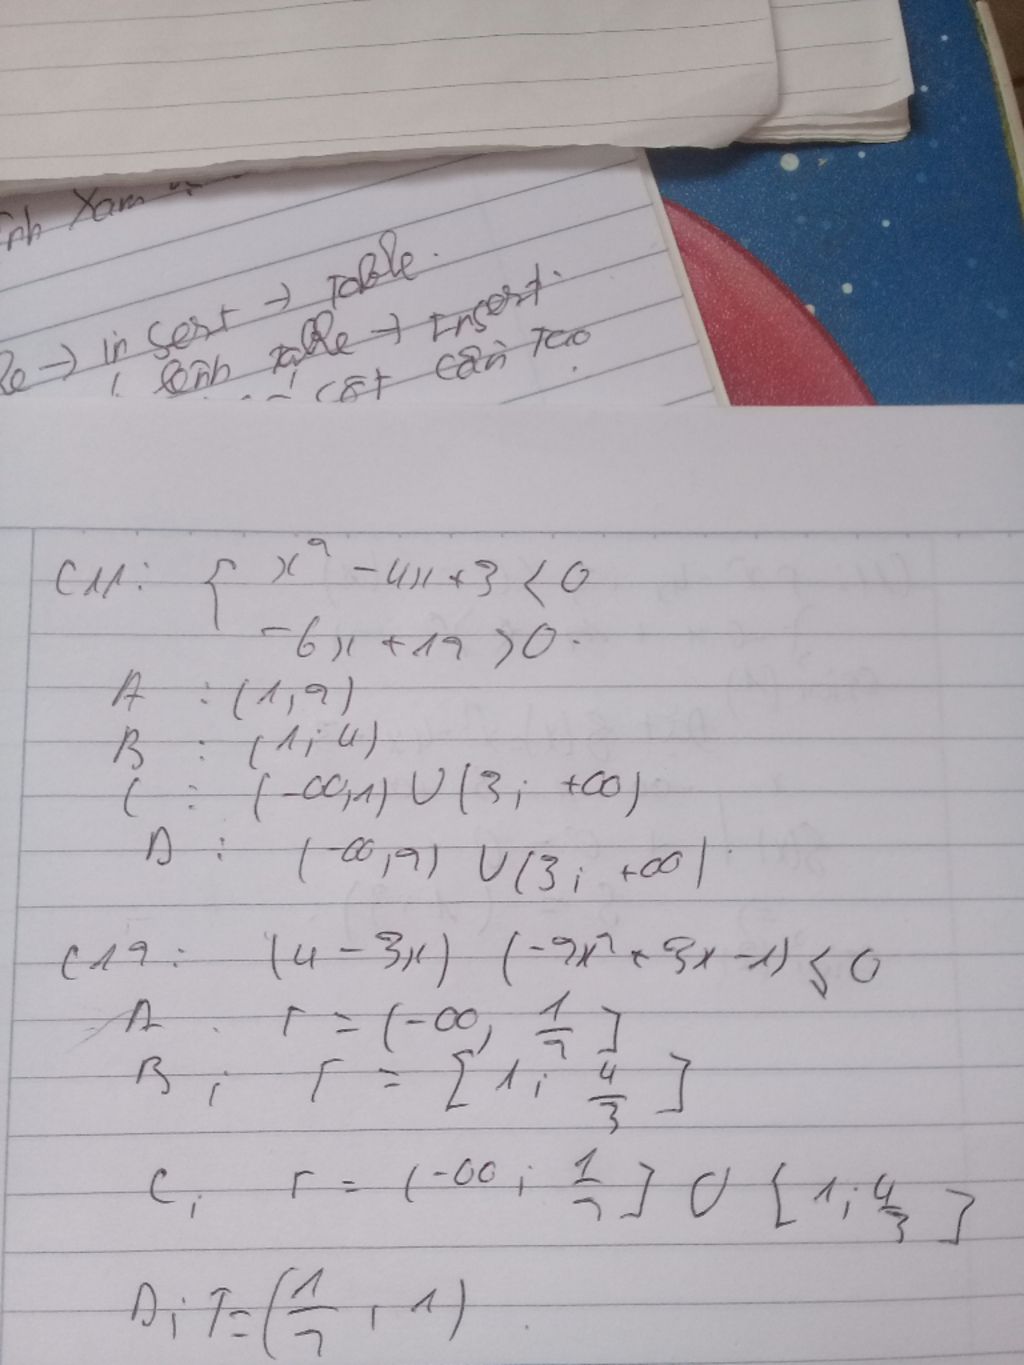 ình Xam
Re → in sert → Table.
lệnh Table → Insert.
cột cần Tạo
C11: { x² - 4x + 3 < 0
-6x + 12 > 0.
A : (1, 2)
B : (1; 4)
C : (-∞, 1) ∪ (3; +∞)
D : (-∞, 2) ∪ (3; +∞).
C12: (4 - 3x) (-2x² + 3x - 1) ≤ 0
A. T = (-∞, 1/2]
B; T = [1; 4/3]
C; T = (-∞; 1/2] ∪ [1; 4/3]
D; T = (1/2, 1)